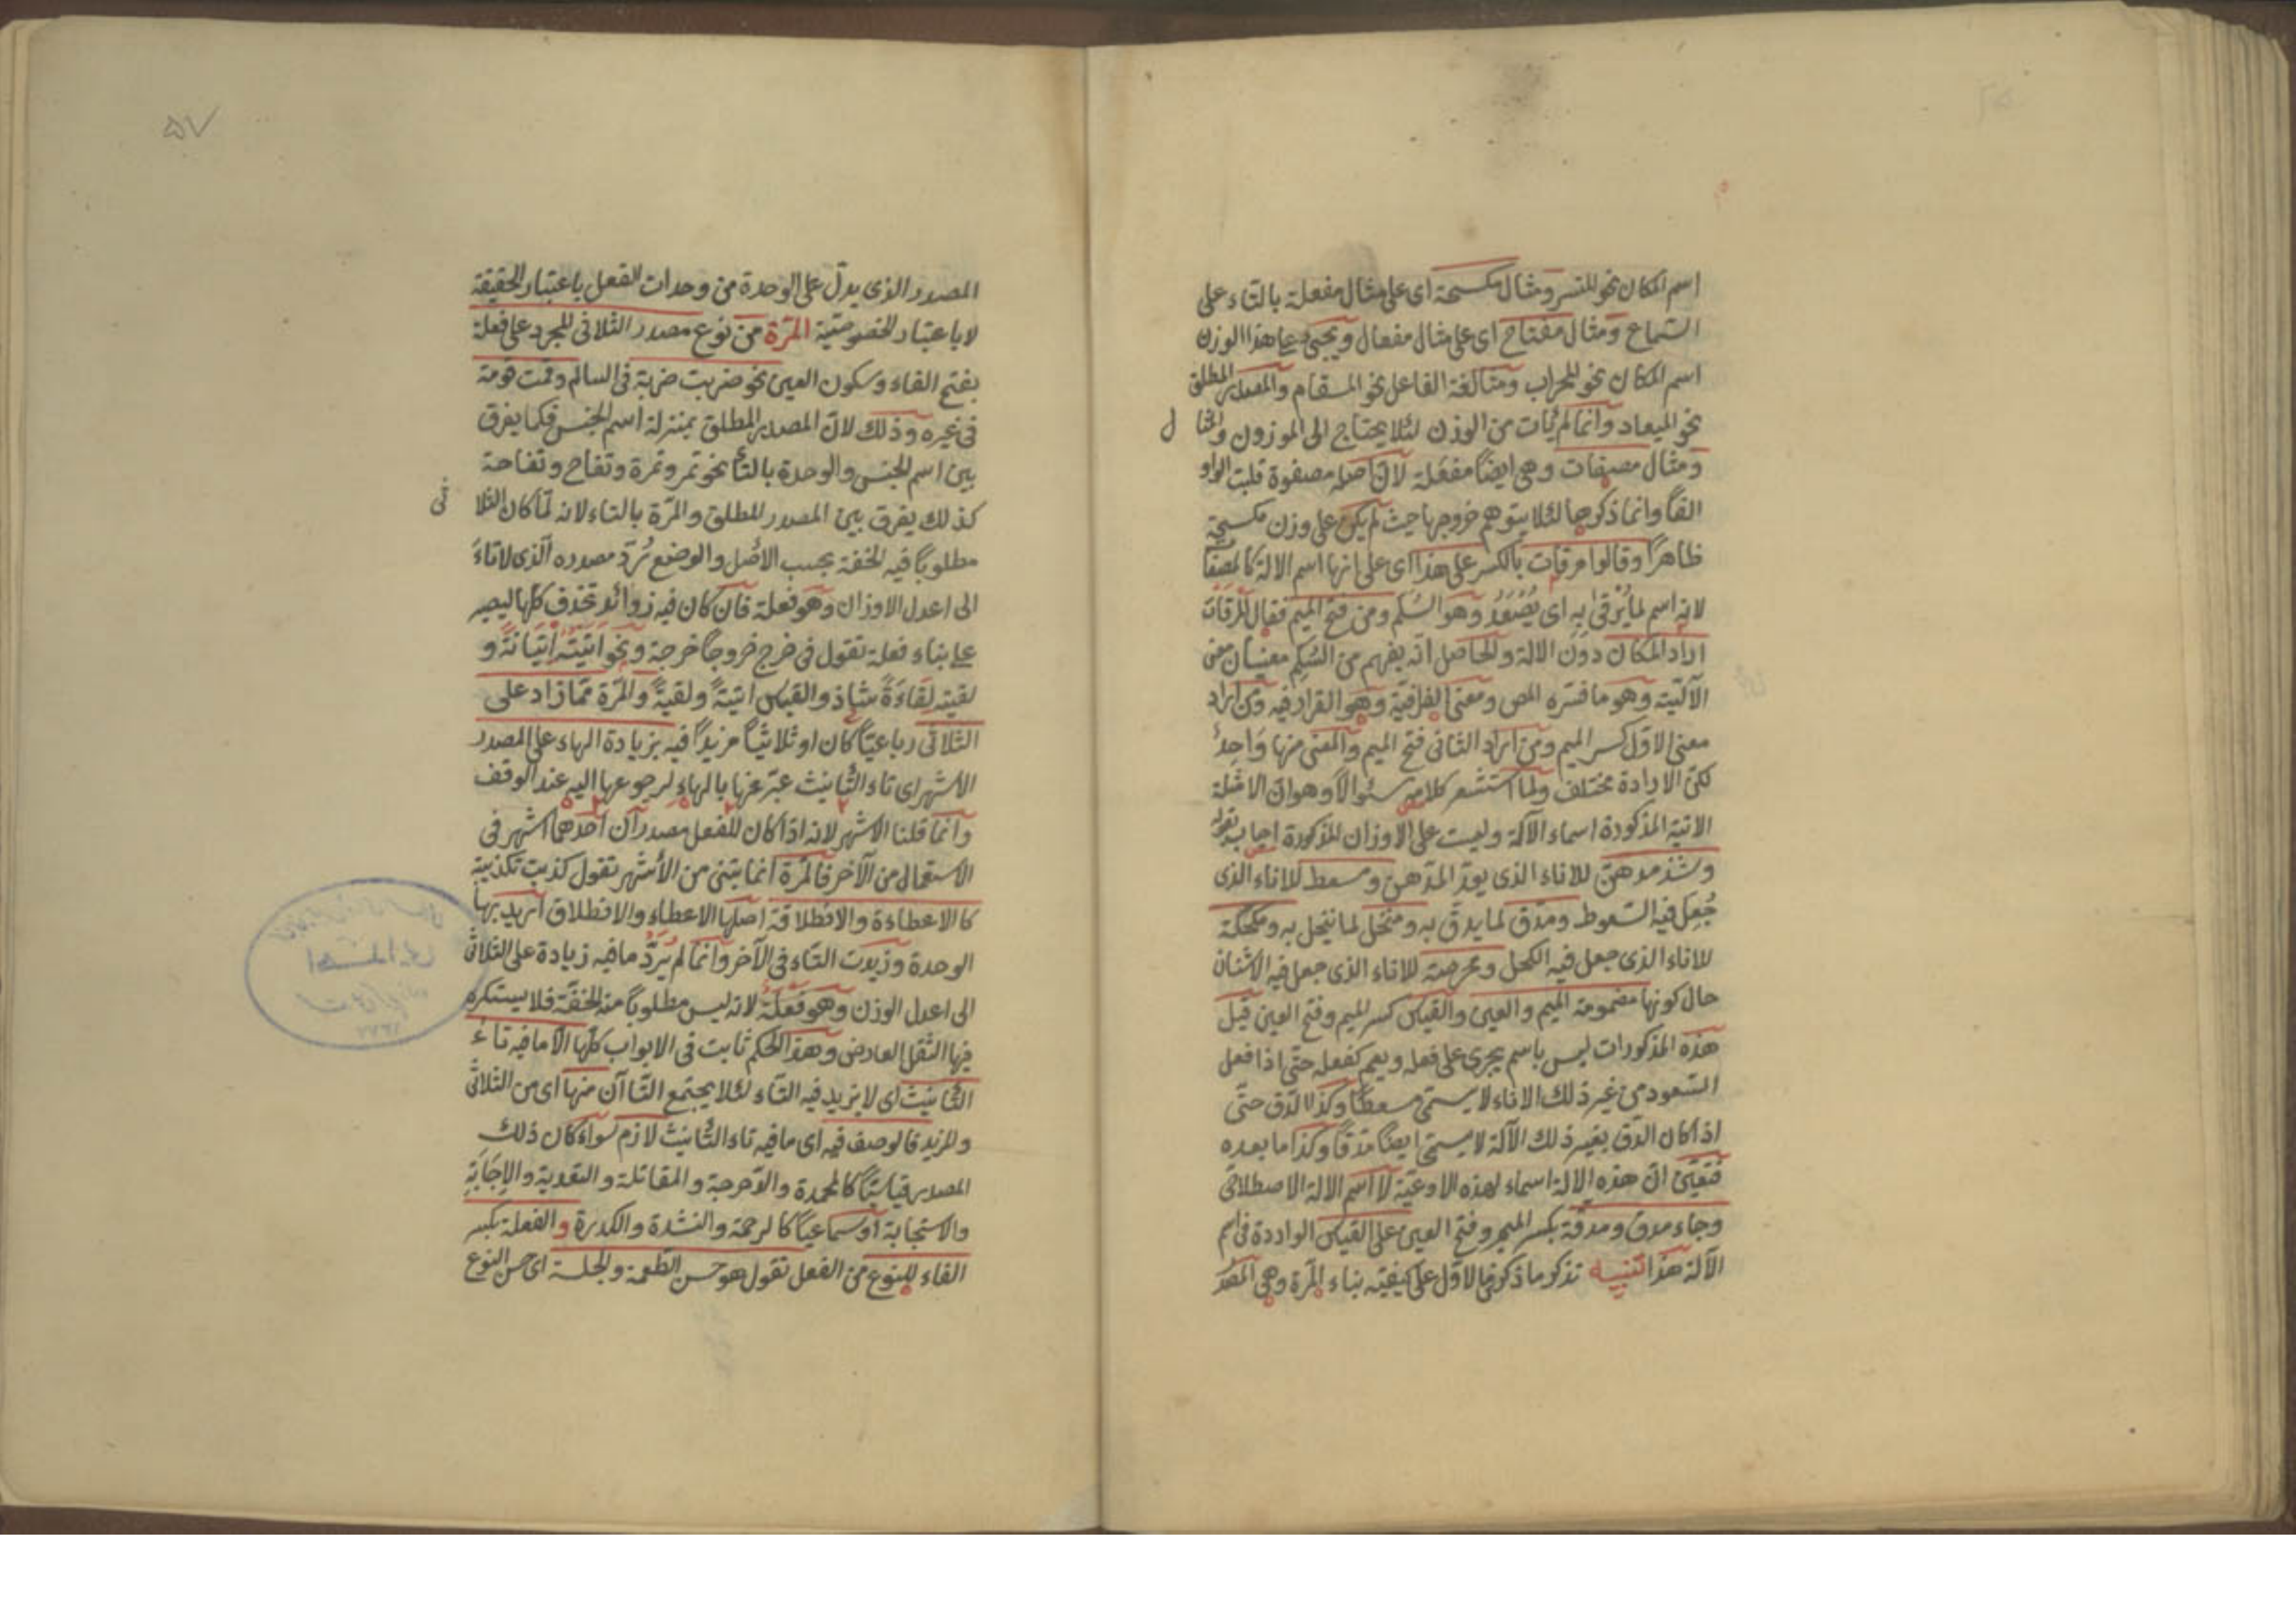 اسم المكان نحو المنسر ومثال مكسحة اى على مثال مفعلة بالتاء على
السماع ومثال مفتاح اى على مثال مفعال ويجئ على هذا الوزن
اسم المكان نحو المحراب ومبالغة الفاعل نحو المسقام والمصدر المطلق
نحو الميعاد وانما لم يأت من الوزن لئلا يحتاج الى الموزون والمثا
ل
ومثال مصفات وهى ايضاً مفعلة لان اصله مصفوة قلبت الواو
الفاً وانما ذكرها لئلا يتوهم خروجها حيث لم يكن على وزن مكسحة
ظاهراً وقالوا مرقات بالكسر على هذا اى على انها اسم الالة كالمصفا
لانه اسم لما يُرْقىٰ بِهِ اى يُصْعَدُ وهو السلم ومن فتح الميم فقال المرقات
اراد المكان دون الالة والحاصل انه يفهم من السُلم معنيان معنى
الآلية وهو ما فسره المص ومعنى الظرفية وهو القرار فيه ومن اراد
معنى الاول كسر الميم ومن اراد الثانى فتح الميم والمعنى منها وَاحِدٌ
لكن الارادة مختلف ولما استشعر كلامه سئوالاً وهو ان الامثلة
الاتية المذكورة اسماء الآلة وليست على الاوزان المذكورة اجاب بقوله
وشذ مدهن للاناء الذى يعد المدهن ومسعط للاناء الذى
جُعِل فيه السعوط ومدق لما يدق به ومنخل لما ينخل به ومكحلة
للاناء الذى جعل فيه الكحل ومحرضة للاناء الذى جعل فيه الاشنان
حال كونها مضمومة الميم والعين والقياس كسر الميم وفتح العين قيل
هذه المذكورات ليس باسم يجرى على فعله ويعم كفعله حتى اذا فعل
السعود من غير ذلك الاناء لا يسمى مسعطاً وكذا الدق حتى
اذا كان الدق بغير ذلك الآلة لا يسمى ايضاً مدقاً وكذا ما بعده
فتعين ان هذه الالة اسماء لهذه الاوعية لا اسم الالة الاصطلاحى
وجاء مدق ومدقة بكسر الميم وفتح العين على القياس الواردة فى اسم
الآلة هذا تنبيه تذكر ما ذكر فى الاول على كيفية بناء المرة وهى المصد
٥٧
المصدر الذى يدل على الوحدة من وحدات الفعل باعتبار الحقيقة
لا باعتبار الخصوصية المرّة من نوع مصدر الثلاثى المجرد على فعلة
بفتح الفاء وسكون العين نحو ضربت ضربة فى السالم وقمت قومة
فى غيره وذلك لان المصدر المطلق بمنزلة اسم الجنس فكما يفرق
بين اسم الجنس والوحدة بالتاء نحو تمر وتمرة وتفاح وتفاحة
كذلك يفرق بين المصدر المطلق والمرّة بالتاء لانه لما كان الثلا
ثى
مطلوباً فيه الخفة بحسب الاصل والوضع تُردّ مصدره الذى لا تاء
الى اعدل الاوزان وهو فعلة فان كان فيه زوائد تحذف كلها ليصير
على بناء فعلة تقول فى خرج خروجاً خرجة ونحو اتيته اتيانة و
لقيته لقاءة شاذ والقياس اتية ولقية والمرة مما زاد على
الثلاثى رباعيّاً كان او ثلاثيّاً مزيداً فيه بزيادة الهاء على المصدر
الاشهر اى تاء التأنيث عبّر عنها بالهاء لرجوعها اليه عند الوقف
وانما قلنا الاشهر لانه اذا كان للفعل مصدرآن احدهما اشهر فى
الاستعمال من الآخر فالمرة انما يبتنى من الأشهر تقول كذبت تكذيبة
كالاعطاءة والانطلاقة اصلها الاعطاء والانطلاق اريد بها
الوحدة وزيدت التاء فى الآخر وانما لم يُردّ ما فيه زيادة على الثلاثى
الى اعدل الوزن وهو فَعْلَة لانه ليس مطلوباً منه الخفة فلا يستكره
فيها الثقل العارض وهذا الحكم ثابت فى الابواب كلها الا ما فيه تاء
التأنيث اى لا يزيد فيه التاء لئلا يجتمع التاآن منها اى من الثلاثى
والمزيد فالوصف فيه اى ما فيه تاء التأنيث لازم سواء كان ذلك
المصدر قياسيّاً كالمحمدة والدحرجة والمقاتلة والتعدية والإجَابَةِ
والاستجابة او سماعيّاً كالرحمة والنشدة والكدرة والفعلة بكسر
الفاء للنوع من الفعل تقول هو حسن الطعمة والجلسة اى حسن النوع